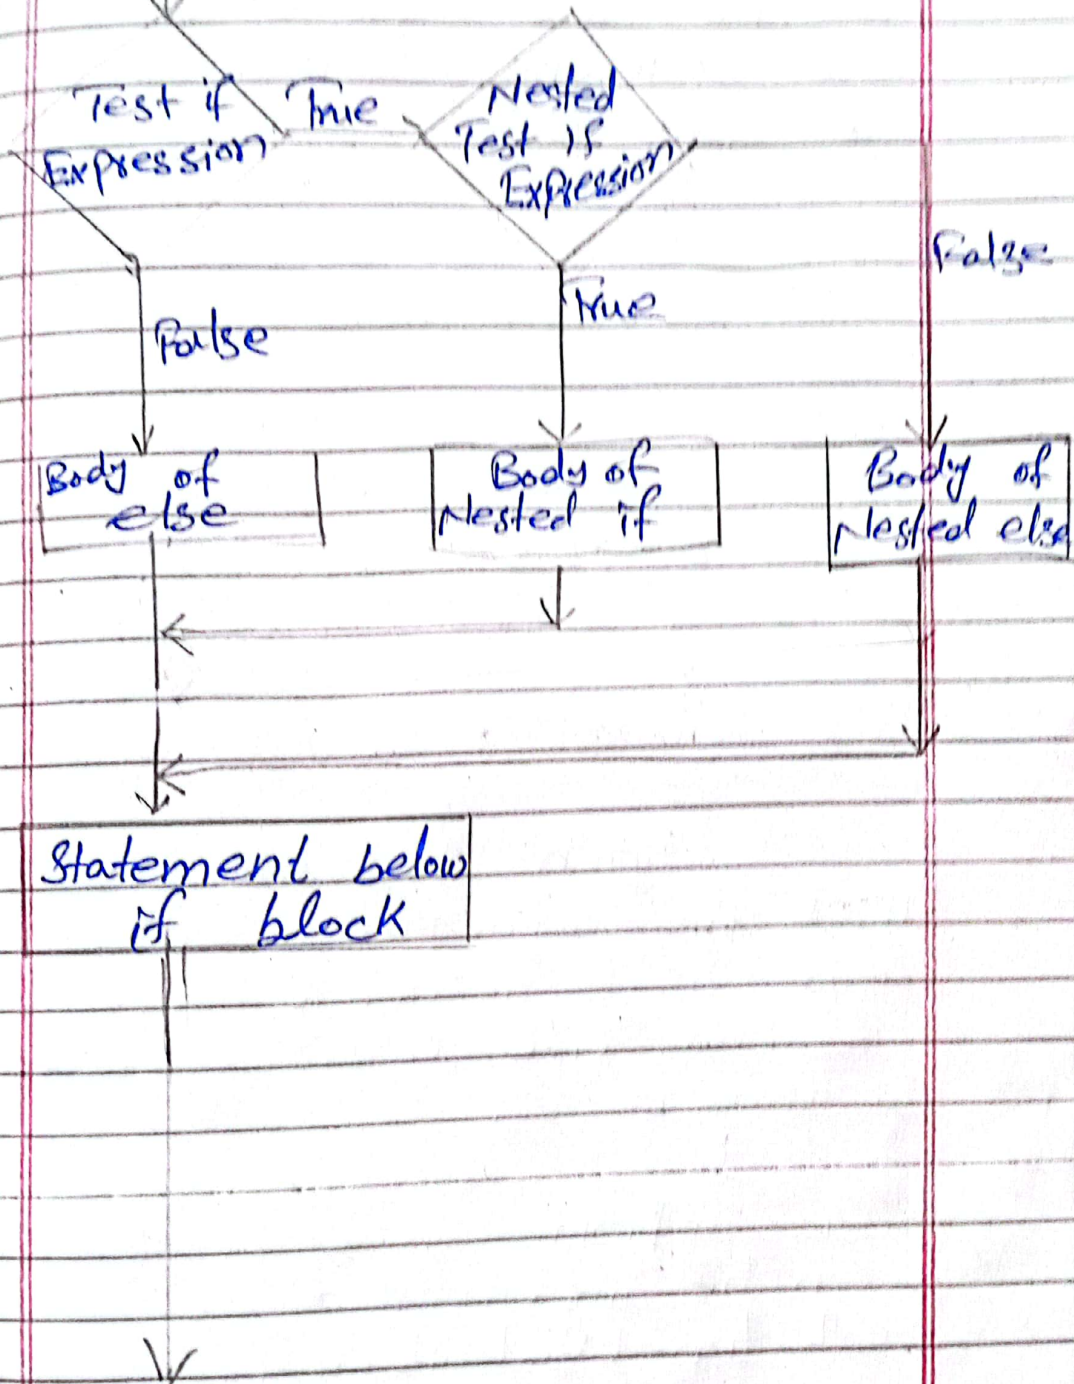 Test if
Expression
True
Nested
Test if
Expression
False
True
False
Body of
else
Body of
Nested if
Body of
Nested else
Statement below
if block